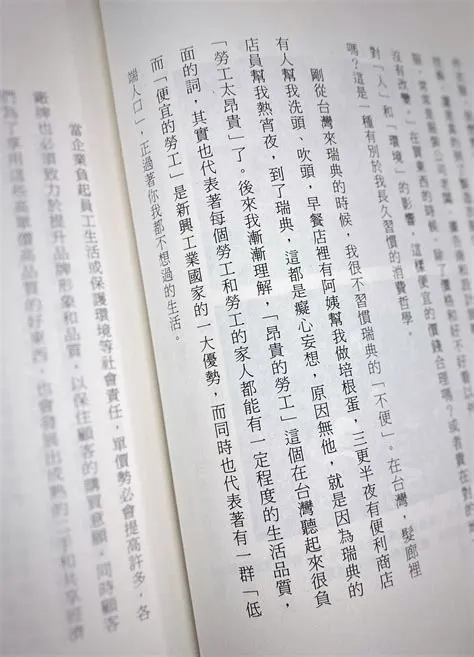 沒有改變。在買東西的時候，除了價格和好不好看
對「人」和「環境」的影響，這樣便宜的價錢合理嗎？或者貴在
嗎？這是一種有別於我長久習慣的消費哲學。
剛從台灣來瑞典的時候，我很不習慣瑞典的「不便」。在台灣，髮廊裡
有人幫我洗頭、吹頭，早餐店裡有阿姨幫我做培根蛋，三更半夜有便利商店
店員幫我熱宵夜，到了瑞典，這都是癡心妄想，原因無他，就是因為瑞典的
「勞工太昂貴」了。後來我漸漸理解，「昂貴的勞工」這個在台灣聽起來很負
面的詞，其實也代表著每個勞工和勞工的家人都能有一定程度的生活品質，
而「便宜的勞工」是新興工業國家的一大優勢，而同時也代表著有一群「低
端人口」，正過著你我都不想過的生活。
當企業負起員工生活或保護環境等社會責任，單價勢必會提高許多，各
廠牌也必須致力於提升品牌形象和品質，以保住顧客的購買意願。同時顧客
們為了享用這些高單價高品質的好東西，也會發展出成熟的二手和共享經濟